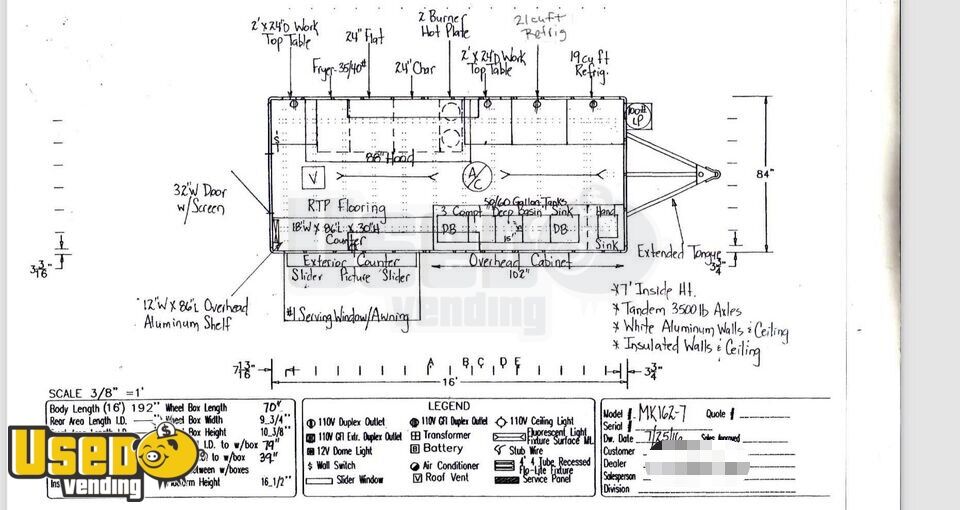 2' x 24"D Work
Top Table
Fryer-35/40#
24" Flat
24" Char
2 Burner
Hot Plate
2' x 24"D Work
Top Table
21 cu ft
Refrig
19 cu ft
Refrig.
100#
LP
88" Hood
V
A/C
84"
32"W Door
w/Screen
RTP Flooring
50/60 Gallon Tanks
3 Compt "Deep Basin" Sink
DB
15"
DB
Hand
Sink
18"W x 86"L x 30"H
Counter
Exterior Counter
Slider Picture Slider
Overhead Cabinet
102"
Extended Tongue
3 3/4"
12"W x 86"L Overhead
Aluminum Shelf
#1 Serving Window/Awning
* 7' Inside Ht.
* Tandem 3500 lb Axles
* White Aluminum Walls & Ceiling
* Insulated Walls & Ceiling
USED
vending
A B C D E
16'
3 3/4"
SCALE 3/8" =1'
Body Length (16') 192"
Rear Area Length I.D.
Wheel Box Length 70"
Wheel Box Width 9_3/4"
Box Height 10_3/8"
I.D. to w/box 79"
to w/box 39"
between w/boxes
Height 16_1/2"
USED
vending
LEGEND
110V Duplex Outlet
110V GFI Extr. Duplex Outlet
12V Dome Light
$ Wall Switch
Slider Window
110V GFI Duplex Outlet
Transformer
B Battery
Air Conditioner
V Roof Vent
110V Ceiling Light
Fluorescent Light
Fixture Surface Mt.
Stub Wire
4' 4 Tube Recessed
Flip-Lite Fixture
Service Panel
Model # MK162-7 Quote #
Serial #
Dw. Date 7/25/16 Sales Approved
Customer
Dealer
Salesperson
Division